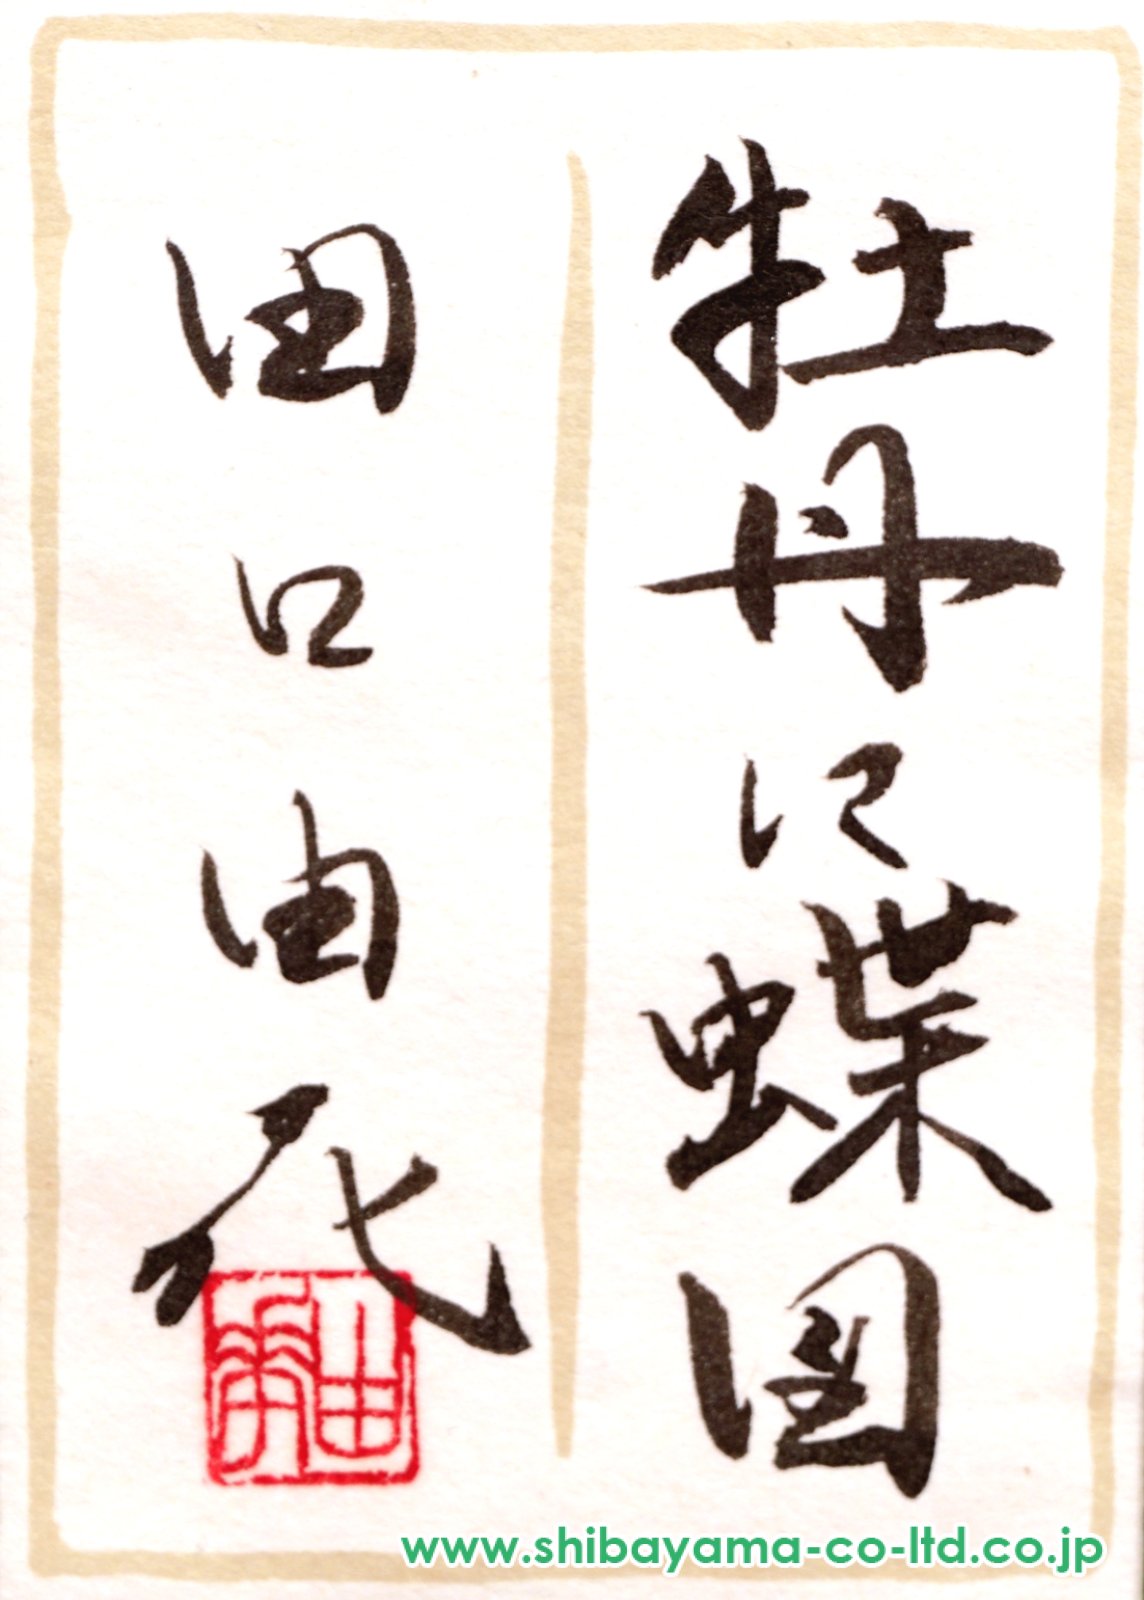 牡丹に蝶図
田口由花
www.shibayama-co-ltd.co.jp